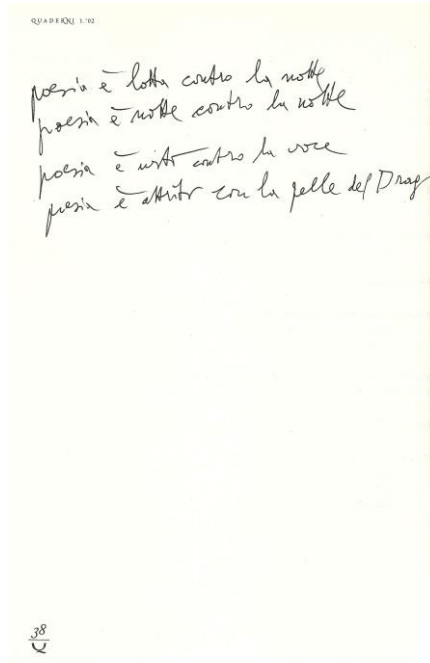 QUADERQI 1.'02
poesia è lotta contro la notte
poesia è notte contro la notte
poesia è urto contro la voce
poesia è attrito con la pelle del Drag
38